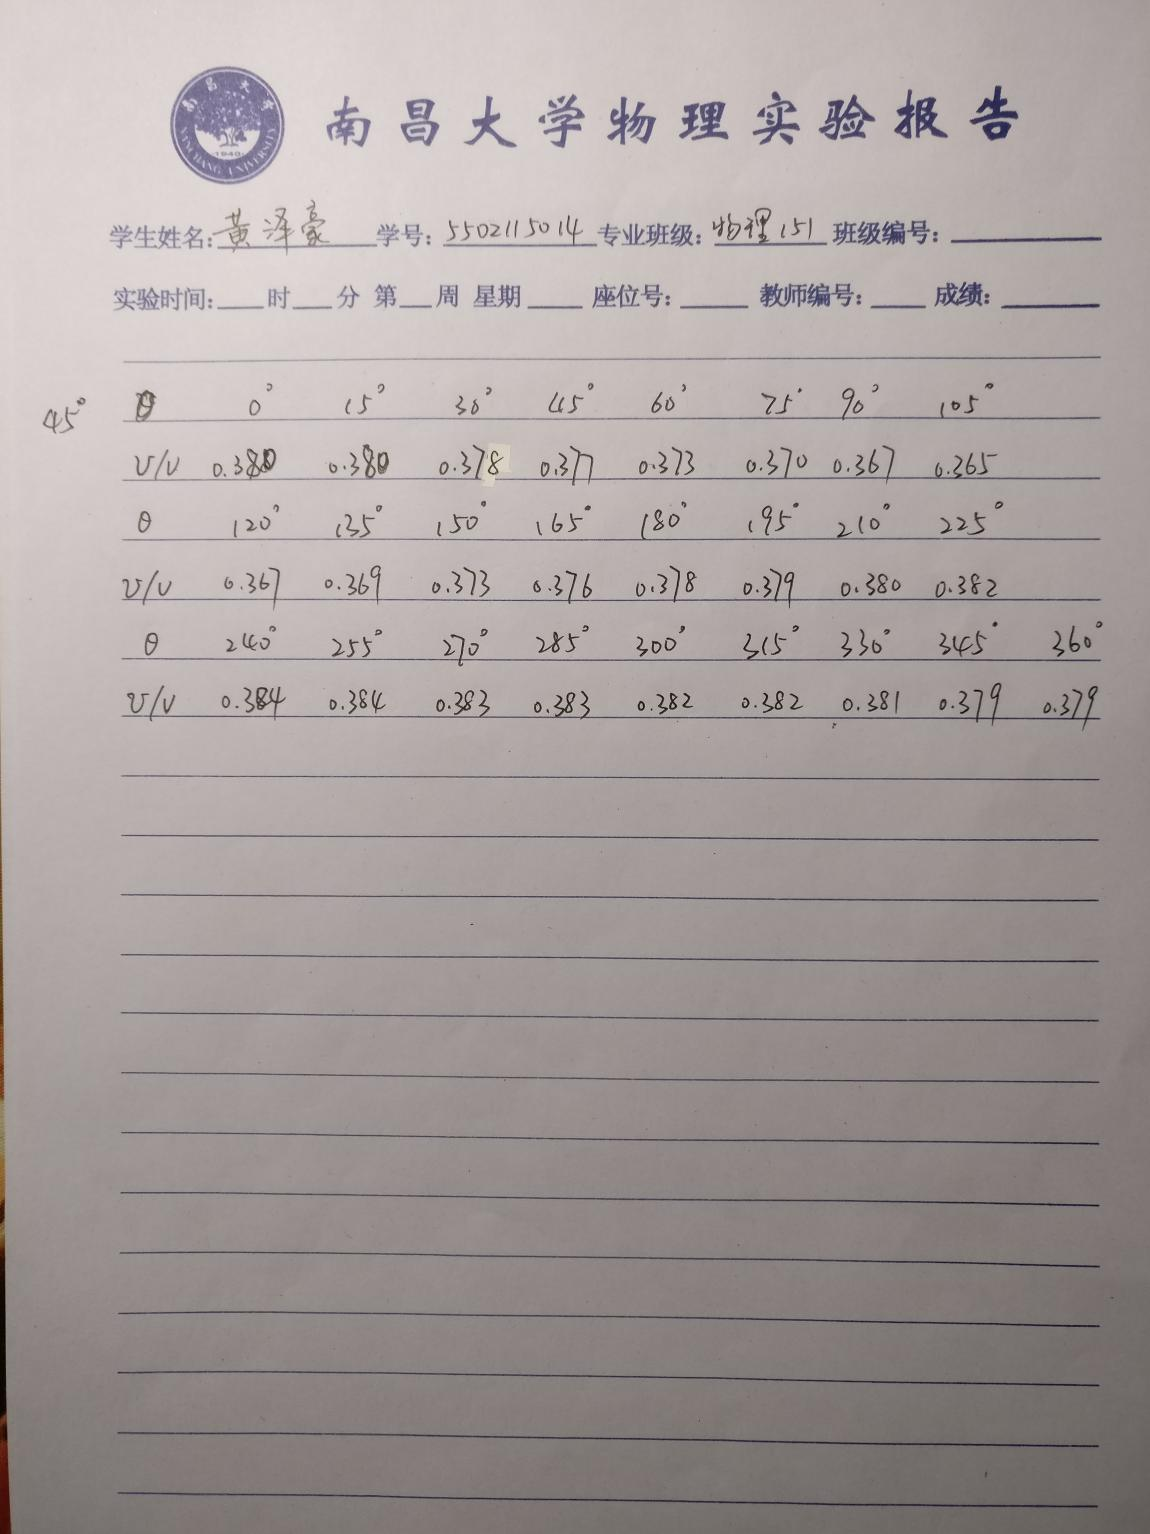 南昌大学
NANCHANG UNIVERSITY
1940
南昌大学物理实验报告
学生姓名: 黄泽豪 学号: 5502115014 专业班级: 物理151 班级编号:
实验时间: 时 分 第 周 星期 座位号: 教师编号: 成绩:
45° θ 0° 15° 30° 45° 60° 75° 90° 105°
U/V 0.380 0.380 0.378 0.377 0.373 0.370 0.367 0.365
θ 120° 135° 150° 165° 180° 195° 210° 225°
U/V 0.367 0.369 0.373 0.376 0.378 0.379 0.380 0.382
θ 240° 255° 270° 285° 300° 315° 330° 345° 360°
U/V 0.384 0.384 0.383 0.383 0.382 0.382 0.381 0.379 0.379